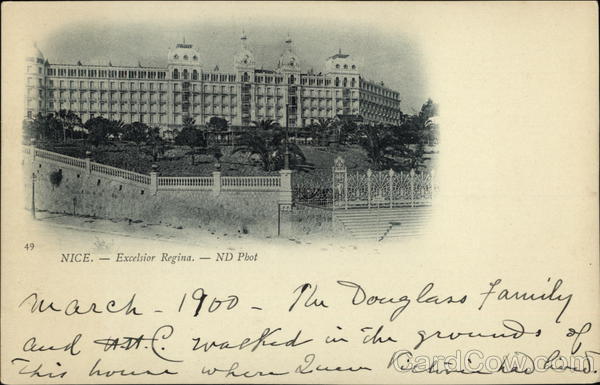 49
NICE. — Excelsior Regina. — ND Phot
March - 1900 - The Douglass Family
and H.C. walked in the grounds of
This house where Queen Victoria has lived.
CardCow.com